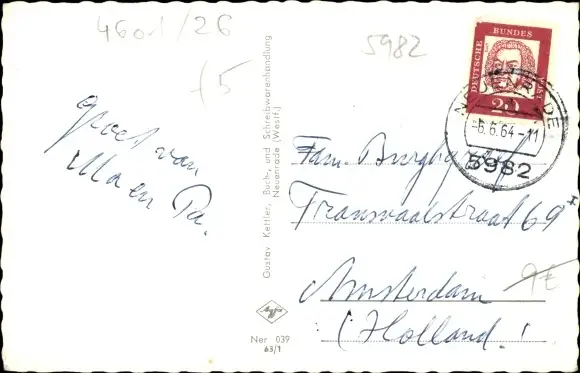 4601/26
5982
f5
DEUTSCHE BUNDESPOST
20
NEUENRADE
-6.6.64-11
5982
Groet van
Ma en Pa.
Gustav Kettler, Buch- und Schreibwarenhandlung
Neuenrade (Westf.)
Fam.
Transvaalstraat 69
Amsterdam
(Holland!
9€
Agfa
Ner 039
63/1